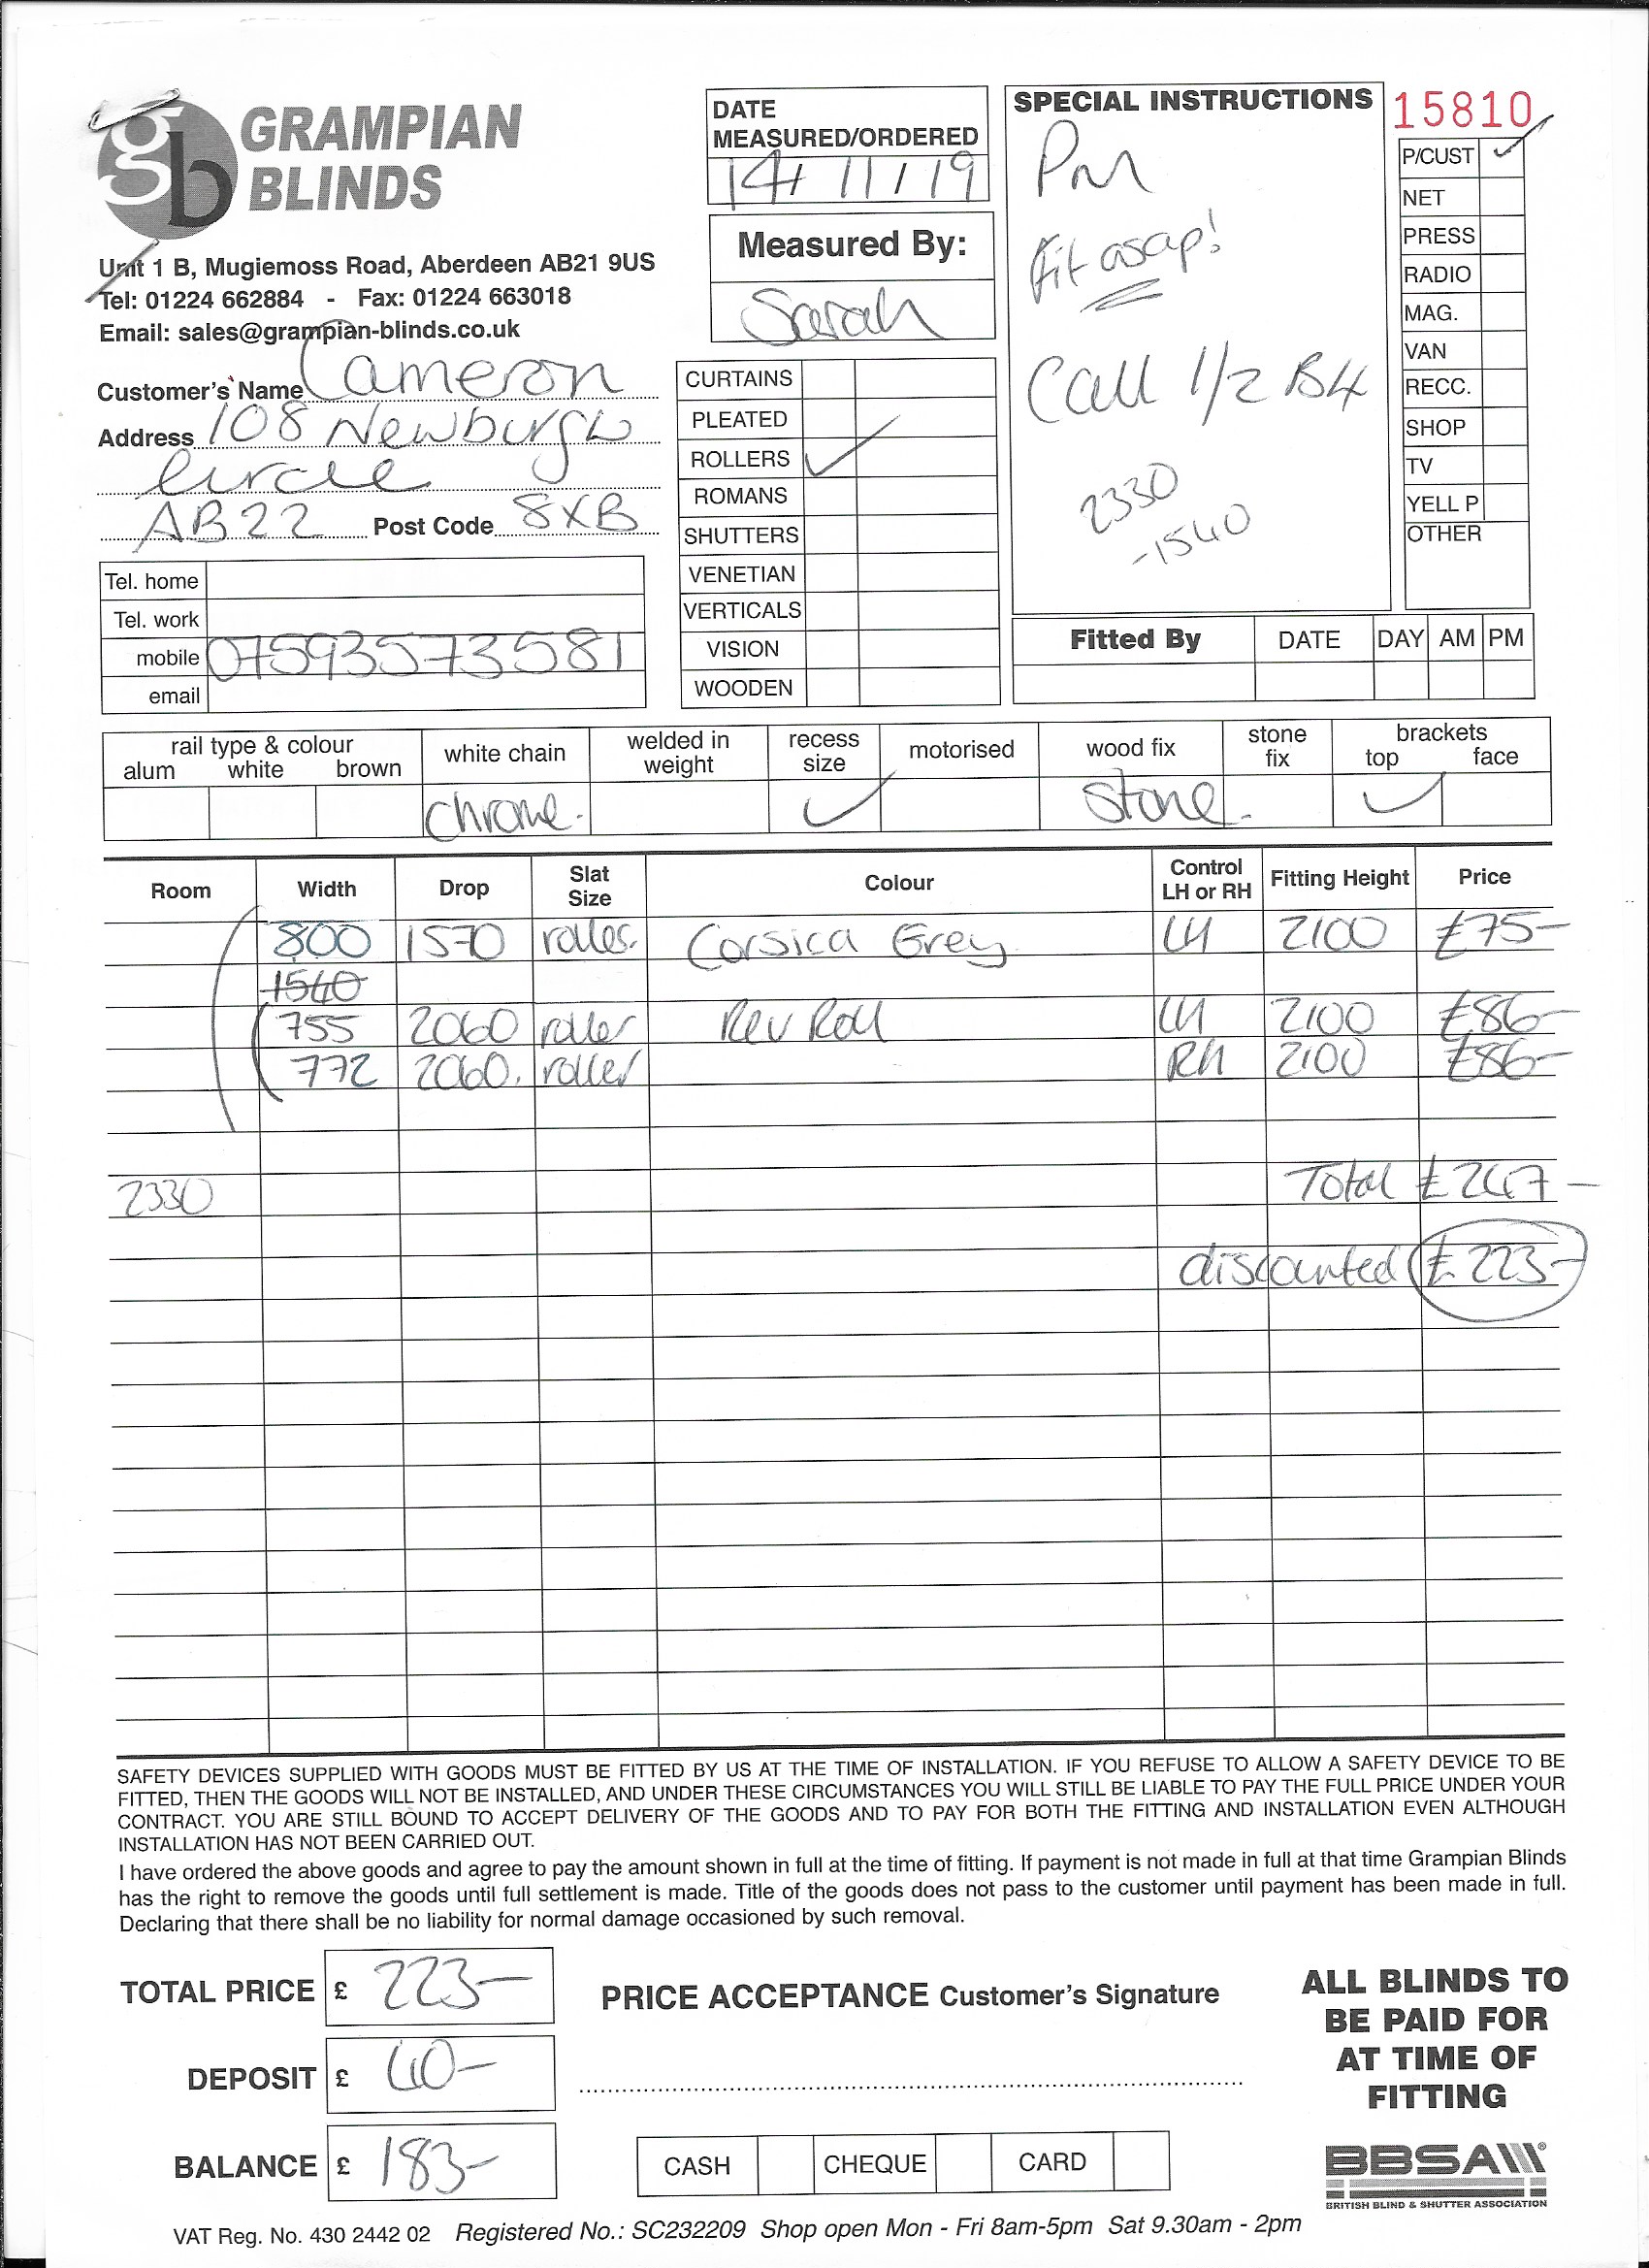 gb GRAMPIAN BLINDS
Unit 1 B, Mugiemoss Road, Aberdeen AB21 9US
Tel: 01224 662884 - Fax: 01224 663018
Email: sales@grampian-blinds.co.uk
Customer's Name Cameron
Address 108 Newburgh
Circle
AB22 Post Code 8XB
Tel. home
Tel. work
mobile 07593573581
email
DATE
MEASURED/ORDERED
14/11/19
Measured By:
Sarah
CURTAINS
PLEATED
ROLLERS ✓
ROMANS
SHUTTERS
VENETIAN
VERTICALS
VISION
WOODEN
SPECIAL INSTRUCTIONS
Pm
Fit asap!
Call 1/2 B4
2330
-1540
15810
P/CUST ✓
NET
PRESS
RADIO
MAG.
VAN
RECC.
SHOP
TV
YELL P
OTHER
Fitted By DATE DAY AM PM
rail type & colour white chain welded in weight recess size motorised wood fix stone fix brackets
alum white brown top face
chrome. ✓ Stone. ✓
Room Width Drop Slat Size Colour Control LH or RH Fitting Height Price
800 1570 roller. Corsica Grey LH 2100 £75-
1540
755 2060 roller Rev Roll LH 2100 £86-
772 2060. roller RH 2100 £86-
2330 Total £247-
discounted £223-
SAFETY DEVICES SUPPLIED WITH GOODS MUST BE FITTED BY US AT THE TIME OF INSTALLATION. IF YOU REFUSE TO ALLOW A SAFETY DEVICE TO BE
FITTED, THEN THE GOODS WILL NOT BE INSTALLED, AND UNDER THESE CIRCUMSTANCES YOU WILL STILL BE LIABLE TO PAY THE FULL PRICE UNDER YOUR
CONTRACT. YOU ARE STILL BOUND TO ACCEPT DELIVERY OF THE GOODS AND TO PAY FOR BOTH THE FITTING AND INSTALLATION EVEN ALTHOUGH
INSTALLATION HAS NOT BEEN CARRIED OUT.
I have ordered the above goods and agree to pay the amount shown in full at the time of fitting. If payment is not made in full at that time Grampian Blinds
has the right to remove the goods until full settlement is made. Title of the goods does not pass to the customer until payment has been made in full.
Declaring that there shall be no liability for normal damage occasioned by such removal.
TOTAL PRICE £ 223-
DEPOSIT £ 40-
BALANCE £ 183-
PRICE ACCEPTANCE Customer's Signature
CASH CHEQUE CARD
ALL BLINDS TO
BE PAID FOR
AT TIME OF
FITTING
BBSA
BRITISH BLIND & SHUTTER ASSOCIATION
VAT Reg. No. 430 2442 02 Registered No.: SC232209 Shop open Mon - Fri 8am-5pm Sat 9.30am - 2pm